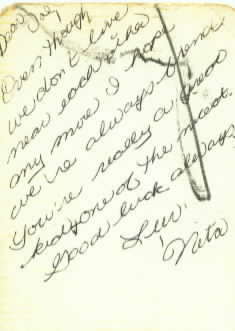 Dear Joe,
Even though
we don't live
near each other
any more I hope
we're always friends
You're really a good
kid, one of the nicest.
Good luck always,
Luv
Nita